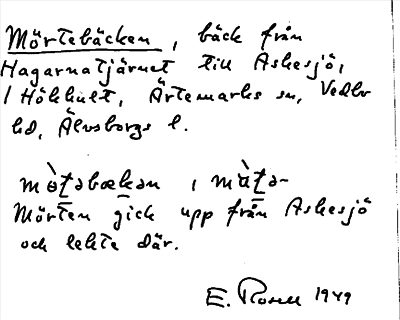 Mörtebäcken, bäck från
Hagarnatjärnet till Askesjö,
i Hökhult, Ärtemarks sn, Vedbo
hd, Älvsborgs l.
mø̀t̠əbækən, mø̀t̠ə-
Mörten gick upp från Askesjö
och lekte där.
E. Rosell 1949